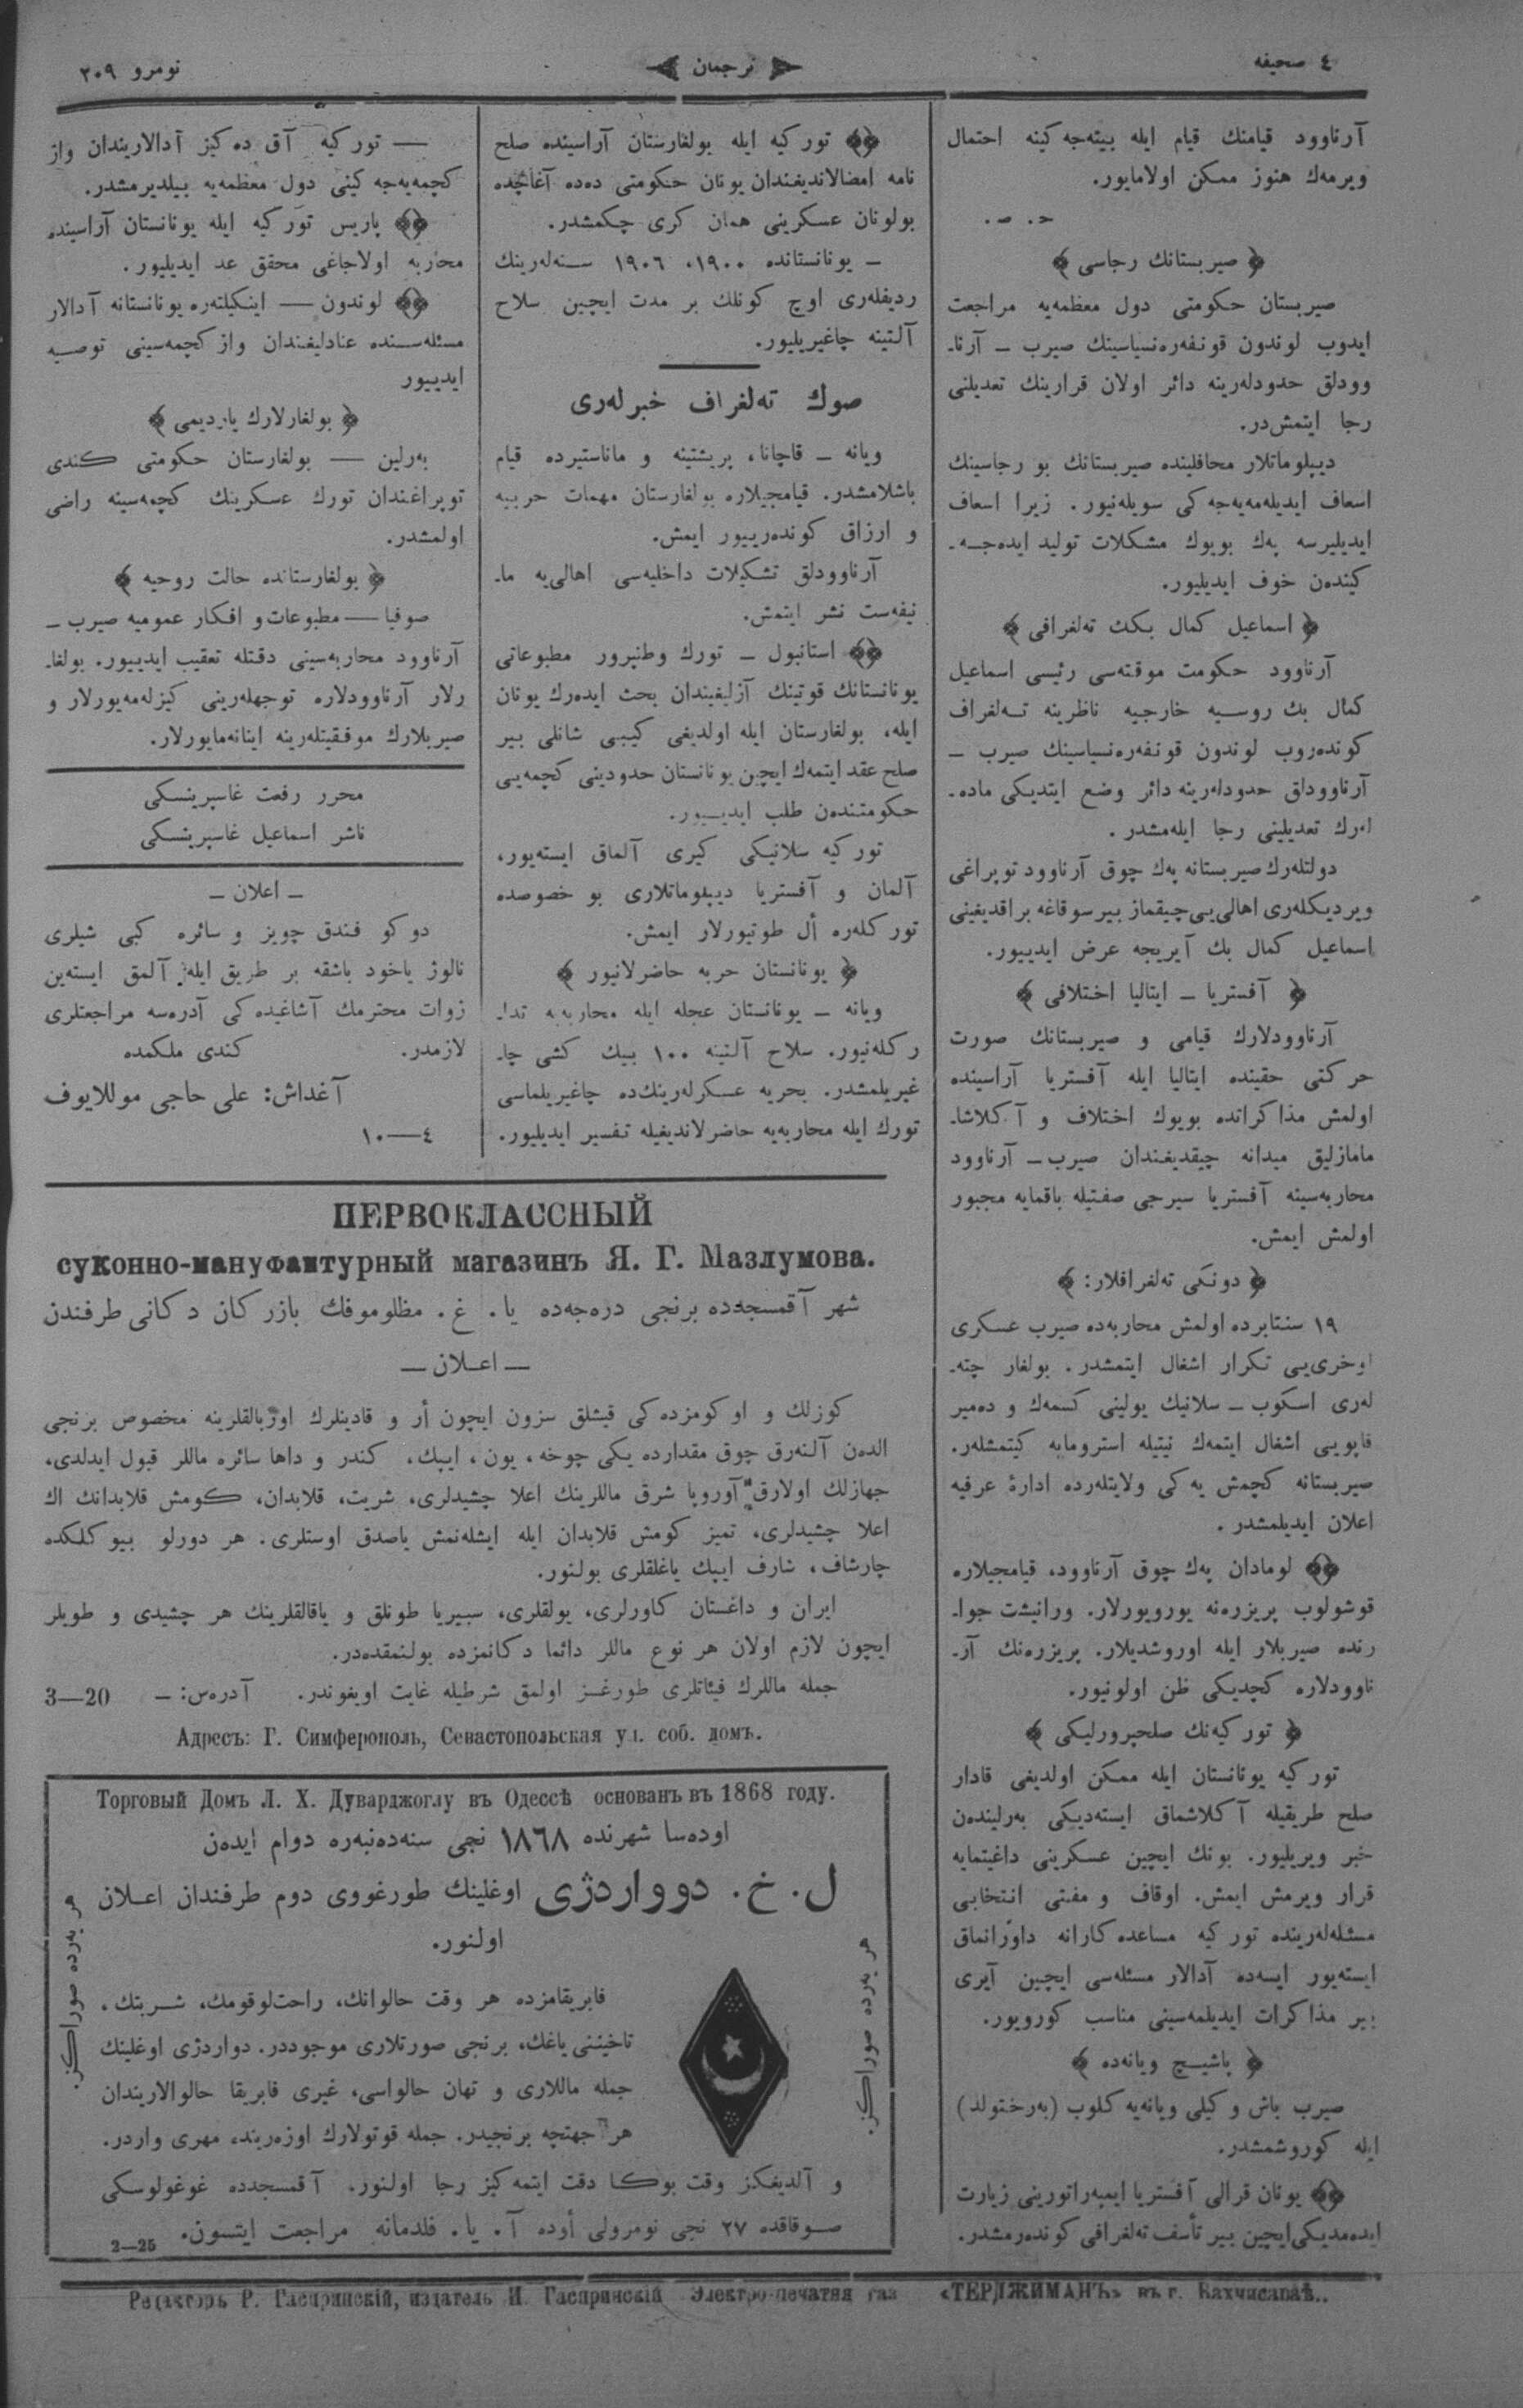 ٤ صحیفه
ترجمان
نومرو ٢٠٩
آرناوود قیامنك قیام ایله بیته‌جه‌كینه احتمال
ویرمه‌ك هنوز ممكن اولامایور.
ح. ص.
صیربستانك رجاسی
صیربستان حكومتی دول معظمه‌یه مراجعت
ایدوب لوندون قونفه‌ره‌نسیاسینك صیرب ـ آرنا-
وودلق حدودله‌رینه دائر اولان قرارینك تعدیلنی
رجا ایتمش‌در.
دیپلوماتلار محافلینده صیربستانك بو رجاسینك
اسعاف ایدیله‌مه‌یه‌جه‌كی سویله‌نیور. زیرا اسعاف
ایدیلیرسه په‌ك بویوك مشكلات تولید ایده‌جه-
كینده‌ن خوف ایدیلیور.
اسماعیل كمال بكك ته‌لغرافی
آرناوود حكومت موقته‌سی رئیسی اسماعیل
كمال بك روسیه خارجیه ناظرینه ته‌لغراف
كونده‌روب لوندون قونفه‌ره‌نسیاسینك صیرب ـ
آرناوودلق حدودله‌رینه دائر وضع ایتدیكی ماده-
له‌رك تعدیلینی رجا ایله‌مشدر.
دولتله‌رك صیربستانه په‌ك چوق آرناوود توپراغی
ویردیكله‌ری اهالی‌یی چیقماز بیر سوقاغه براقدیغینی
اسماعیل كمال بك آیریجه عرض ایدییور.
آفستریا ـ ایتالیا اختلافی
آرناوودلارك قیامی و صیربستانك صورت
حركتی حقینده ایتالیا ایله آفستریا آراسینده
اولمش مذاكراتده بویوك اختلاف و آكلاشا-
مامازلیق میدانه چیقدیغندان صیرب ـ آرناوود
محاربه‌سینه آفستریا سیرجی صفتیله باقمایه مجبور
اولمش ایمش.
دونكی ته‌لغرافلار:
١٩ سنتابرده اولمش محاربه‌ده صیرب عسكری
اوخری‌یی تكرار اشغال ایتمشدر. بولغار چته-
له‌ری اسكوب ـ سلانیك یولینی كسمه‌ك و ده‌میر
قاپویی اشغال ایتمه‌ك نیتیله استرومایه كیتمشله‌ر.
صیربستانه كچمش یه‌كی ولایتله‌رده ادارۀ عرفیه
اعلان ایدیلمشدر.
لومادان په‌ك چوق آرناوود، قیامجیلاره
قوشولوب پریزره‌نه یورویورلار. ورانیشت جوا-
رنده صیربلار ایله اوروشدیلار. پریزره‌نك آر-
ناوودلاره كچدیكی ظن اولونیور.
توركیه‌نك صلحپرورلیكی
توركیه یونانستان ایله ممكن اولدیغی قادار
صلح طریقیله آكلاشماق ایسته‌دیكی به‌رلینده‌ن
خبر ویریلیور. بونك ایچین عسكرینی داغیتمایه
قرار ویرمش ایمش. اوقاف و مفتی انتخابی
مسئله‌له‌رینده توركیه مساعده‌كارانه داورانماق
ایسته‌یور ایسه‌ده آدالار مسئله‌سی ایچین آیری
بیر مذاكرات ایدیلمه‌سینی مناسب كورویور.
پاشیچ ویانه‌ده
صیرب باش وكیلی ویانه‌یه كلوب (به‌رختولد)
ایله كوروشمشدر.
یونان قرالی آفستریا ایمپه‌راتورینی زیارت
ایده‌مدیكی ایچین بیر تأسف ته‌لغرافی كونده‌رمشدر.
توركیه ایله بولغارستان آراسینده صلح
نامه امضالاندیغندان یونان حكومتی ده‌ده آغاچده
بولونان عسكرینی همان كری چكمشدر.
ـ یونانستانده ١٩٠٠، ١٩٠٦ سنه‌له‌رینك
ردیفله‌ری اوچ كونلك بر مدت ایچین سلاح
آلتینه چاغیریلیور.
صوك ته‌لغراف خبرله‌ری
ویانه ـ قاچانا، پریشتینه و ماناستیرده قیام
باشلامشدر. قیامجیلاره بولغارستان مهمات حربیه
و ارزاق كونده‌رییور ایمش.
آرناوودلق تشكیلات داخلیه‌سی اهالی‌یه ما-
نیفه‌ست نشر ایتمش.
استانبول ـ تورك وطنپرور مطبوعاتی
یونانستانك قوتینك آزلیغیندان بحث ایده‌رك یونان
ایله، بولغارستان ایله اولدیغی كیبی شانلی بیر
صلح عقد ایتمه‌ك ایچین یونانستان حدودینی كچمه‌یی
حكومتنده‌ن طلب ایدییور.
توركیه سلانیكی كیری آلماق ایسته‌یور،
آلمان و آفستریا دیپلوماتلاری بو خصوصده
توركله‌ره أل طوتیورلار ایمش.
یونانستان حربه حاضرلانیور
ویانه ـ یونانستان عجله ایله محاربه‌یه تدا-
ركله‌نیور. سلاح آلتینه ١٠٠ بیك كشی چا-
غیریلمشدر. بحریه عسكرله‌رینك‌ده چاغیریلماسی
تورك ایله محاربه‌یه حاضرلاندیغیله تفسیر ایدیلیور.
— توركیه آق ده‌كیز آدالاریندان واز
كچمه‌یه‌جه‌كینی دول معظمه‌یه بیلدیرمشدر.
پاریس توركیه ایله یونانستان آراسینده
محاربه اولاجاغی محقق عد ایدیلیور.
لوندون — اینكیلتره یونانستانه آدالار
مسئله‌سنده عنادلیغندان واز كچمه‌سینی توصیه
ایدییور
بولغارلارك یاردیمی
به‌رلین — بولغارستان حكومتی كندی
توپراغندان تورك عسكرینك كچمه‌سینه راضی
اولمشدر.
بولغارستانده حالت روحیه
صوفیا — مطبوعات و افكار عمومیه صیرب ـ
آرناوود محاربه‌سینی دقتله تعقیب ایدییور. بولغا-
رلار آرناوودلاره توجهله‌رینی كیزله‌مه‌یورلار و
صیربلارك موفقیتله‌رینه اینانه‌مایورلار.
محرر رفعت غاسپرینسكی
ناشر اسماعیل غاسپرینسكی
ـ اعلان ـ
دوكو فندق جویز و سائره كبی شیلری
نالوژ یاخود باشقه بر طریق ایله آلمق ایسته‌ین
زوات محترمك آشاغیده‌كی آدره‌سه مراجعتلری
لازمدر. كندی ملكمده
آغداش: علی حاجی موللایوف
٤—١٠
ПЕРВОКЛАССНЫЙ
суконно-мануфактурный магазинъ Я. Г. Мазлумова.
شهر آقمسجدده برنجی دره‌جه‌ده یا. غ. مظلوموفك بازركان دكانی طرفندن
— اعلان —
كوزلك و اوكومزده‌كی قیشلق سزون ایچون أر و قادینلرك اوژبالقلرینه مخصوص برنجی
الدن آلنه‌رق چوق مقدارده یكی چوخه، یون، ایپك، كندر و داها سائره ماللر قبول ایدلدی،
جهازلك اولارق آوروپا شرق ماللرینك اعلا چشیدلری، شریت، قلابدان، كومش قلابدانك اك
اعلا چشیدلری، تمیز كومش قلابدان ایله ایشله‌نمش یاصدق اوستلری. هر دورلو بیوكلكده
چارشاف، شارف ایپك یاغلقلری بولنور.
ایران و داغستان كاورلری، یولقلری، سیبریا طونلق و یاقالقلرینك هر چشیدی و طویلر
ایچون لازم اولان هر نوع ماللر دائما دكانمزده بولنمقده‌در.
جمله ماللرك فیئاتلری طورغز اولمق شرطیله غایت اویغوندر. آدره‌س: ـ 3—20
Адресъ: Г. Симферополь, Севастопольская ул. соб. домъ.
Торговый Домъ Л. Х. Дуварджоглу въ Одессѣ основанъ въ 1868 году.
اوده‌سا شهرنده ١٨٦٨ نجی سنه‌ده‌نبه‌ره دوام ایده‌ن
ل. خ. دوواردژی اوغلینك طورغووی دوم طرفندان اعلان
اولنور.
هر یه‌رده صوراكز.
هر یه‌رده صوراكز.
فابریقامزده هر وقت حالوانك، راحت‌لوقومك، شربتك،
تاخیننی یاغك، برنجی صورتلاری موجوددر. دواردژی اوغلینك
جمله ماللاری و تهان حالواسی، غیری فابریقا حالوالاریندان
هر جهتچه برنجیدر. جمله قوتولارك اوزه‌رینده مهری واردر.
و آلدیغكز وقت بوكا دقت ایتمه‌كیز رجا اولنور. آقمسجدده غوغولوسكی
صوقاقده ٢٧ نجی نومرولی أوده آ. یا. فلدمانه مراجعت ایتسون.
2—25
Редакторъ Р. Гаспринскій, издатель И. Гаспринскій Электро-печатня газ «ТЕРДЖИМАНЪ» въ г. Бахчисараѣ..